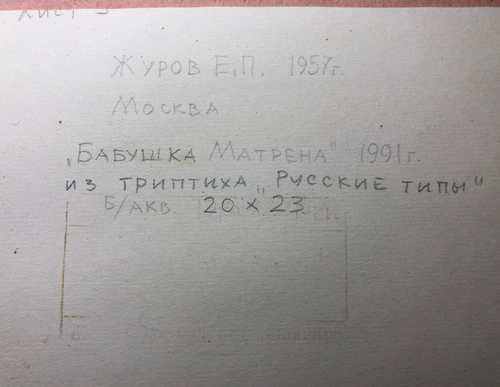 Журов Е.П. 1957г.
Москва
„Бабушка Матрена" 1991г.
из триптиха „Русские типы"
Б/акв. 20 х 23